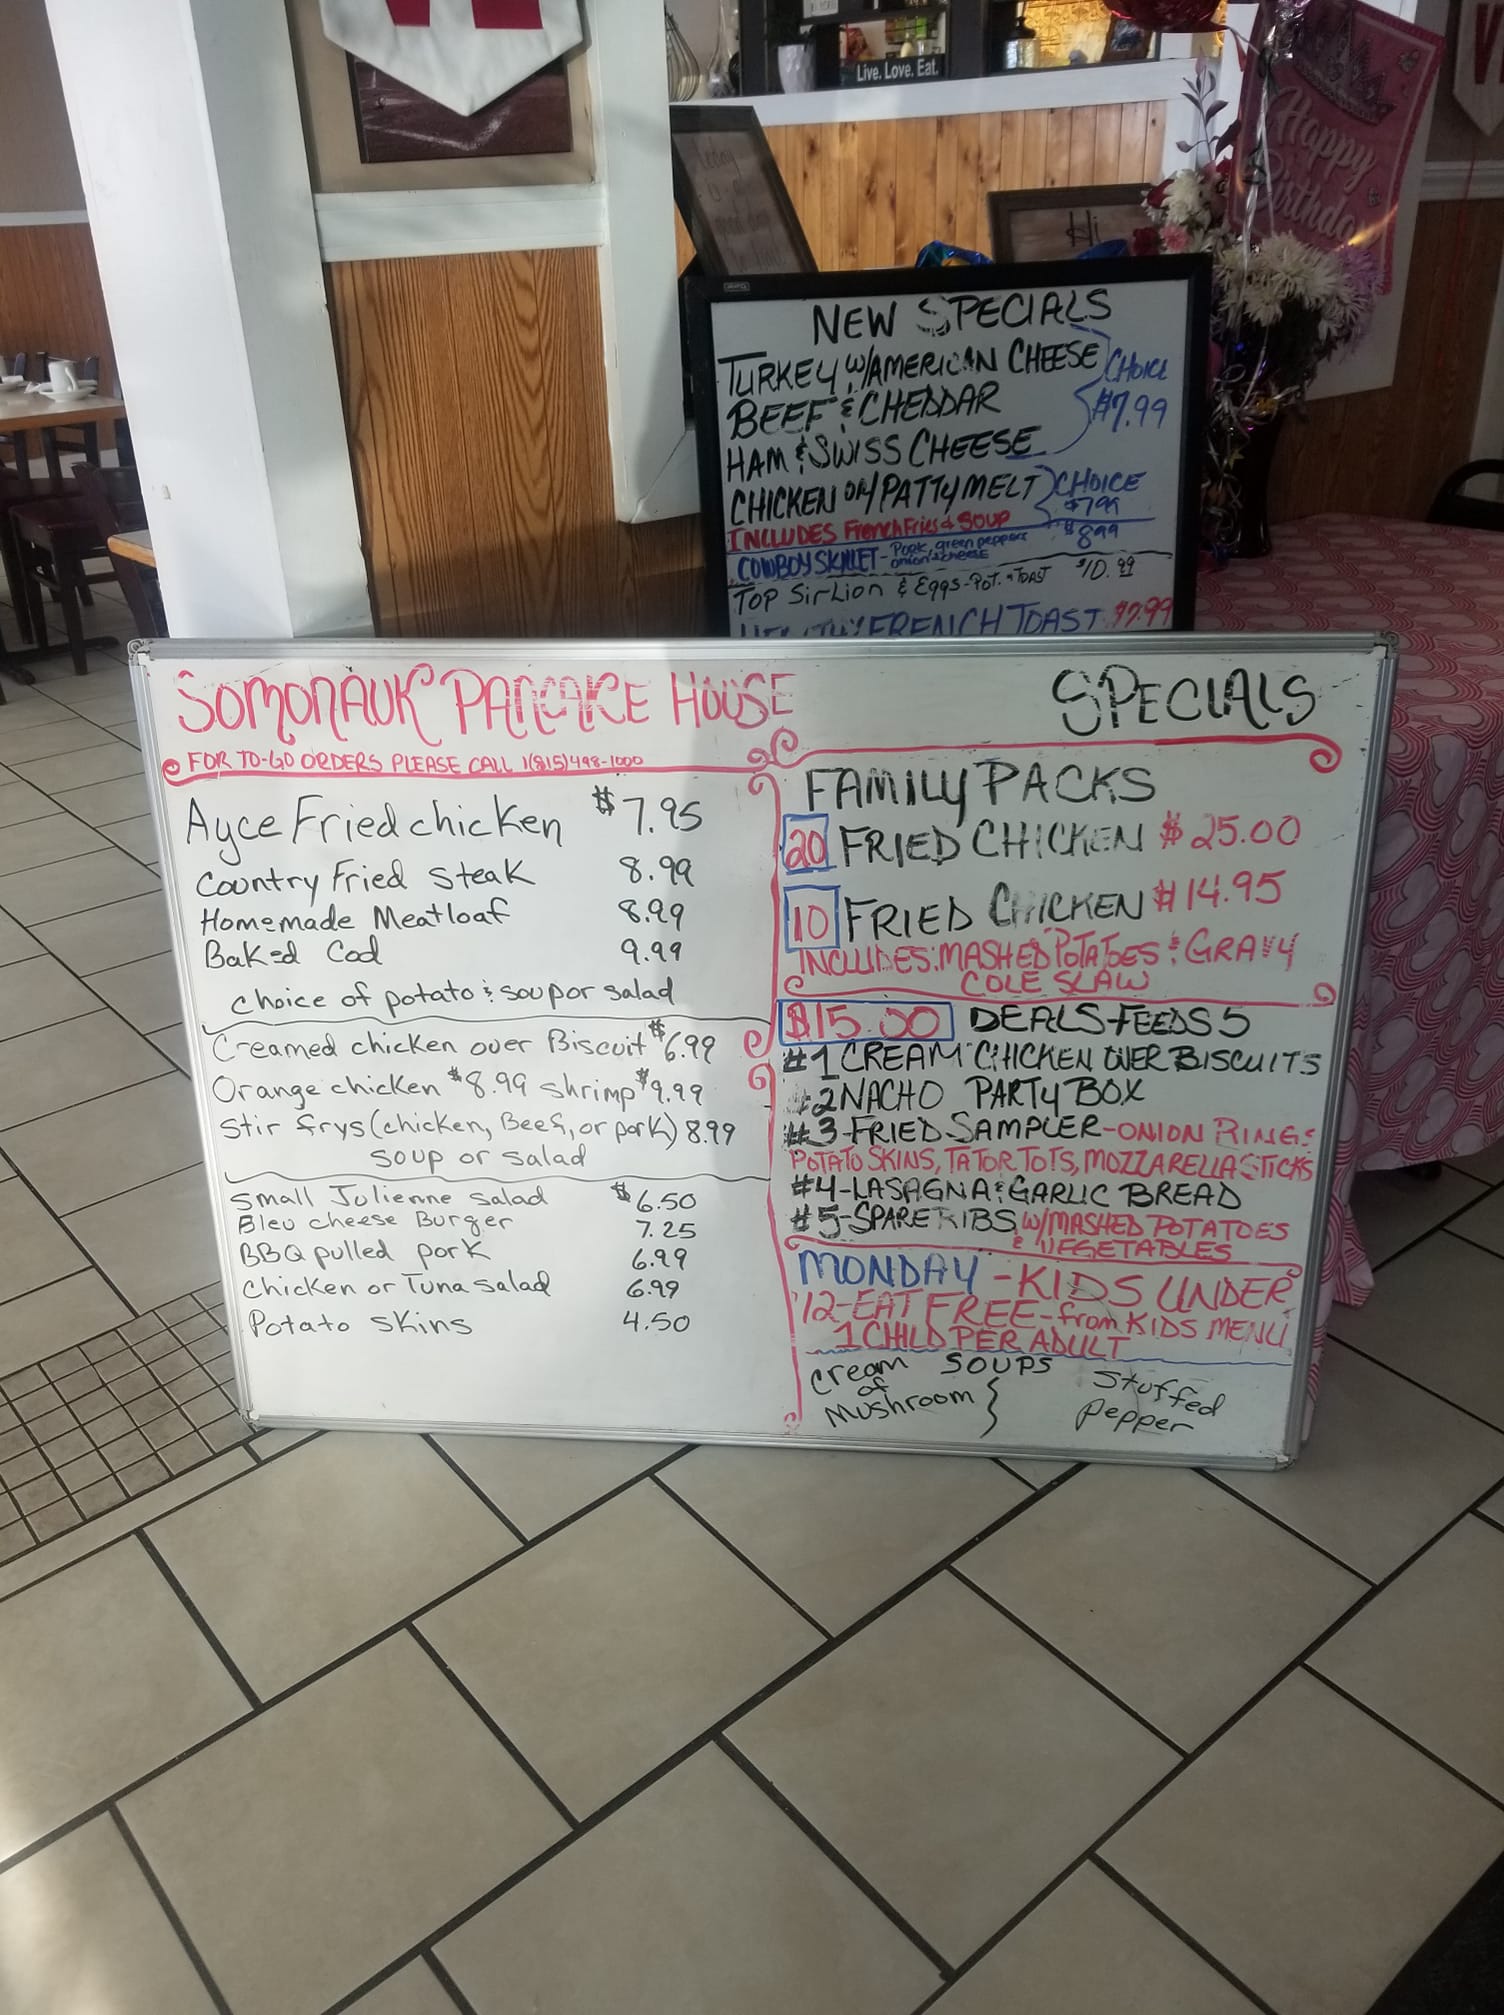 Live. Love. Eat.
Happy
Birthday
Hi
NEW SPECIALS
TURKEY W/AMERICAN CHEESE
BEEF & CHEDDAR
HAM & SWISS CHEESE
CHOICE
$7.99
CHICKEN OR/PATTY MELT
CHOICE
$7.99
INCLUDES French Fries & SOUP
COWBOY SKILLET - Pork, green peppers
onions cheese
$8.99
TOP SIRLION & EGGS-POT. & TOAST $10.99
FRENCH TOAST $7.99
SOMONAUK PANCAKE HOUSE
FOR TO-GO ORDERS PLEASE CALL 1(815)498-1000
Ayce Fried chicken $7.95
Country Fried Steak 8.99
Homemade Meatloaf 8.99
Baked Cod 9.99
choice of potato & soup or salad
Creamed chicken over Biscuit $6.99
Orange chicken $8.99 shrimp $9.99
Stir frys (chicken, Beef, or pork) 8.99
soup or salad
Small Julienne Salad $6.50
Bleu cheese Burger 7.25
BBQ pulled pork 6.99
Chicken or Tuna salad 6.99
Potato skins 4.50
SPECIALS
FAMILY PACKS
20 FRIED CHICKEN $25.00
10 FRIED CHICKEN $14.95
INCLUDES: MASHED POTATOES & GRAVY
COLE SLAW
$15.00 DEALS-FEEDS 5
#1 CREAM CHICKEN OVER BISCUITS
#2 NACHO PARTY BOX
#3-FRIED SAMPLER-ONION RINGS
POTATO SKINS, TATOR TOTS, MOZZARELLA STICKS
#4-LASAGNA & GARLIC BREAD
#5-SPARE RIBS W/MASHED POTATOES
& VEGETABLES
MONDAY-KIDS UNDER
12-EAT FREE-from KIDS MENU
1 CHILD PER ADULT
SOUPS
Cream
of
Mushroom
Stuffed
Pepper